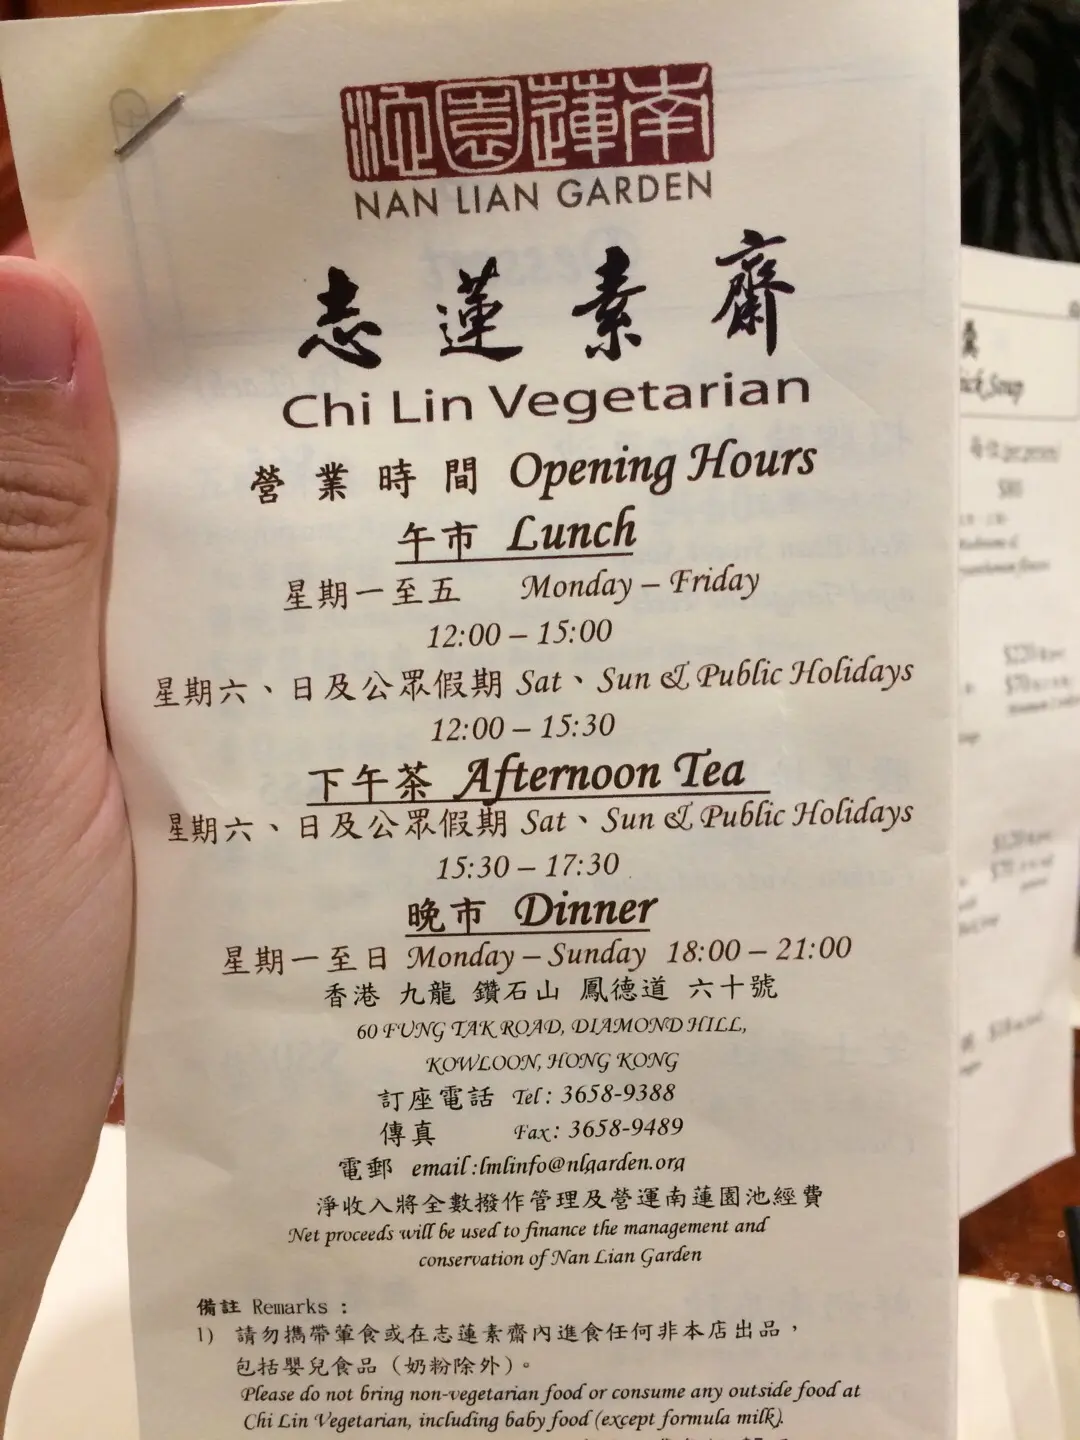 南蓮園池
NAN LIAN GARDEN
志蓮素齋
Chi Lin Vegetarian
營業時間 Opening Hours
午市 Lunch
星期一至五 Monday – Friday
12:00 – 15:00
星期六、日及公眾假期 Sat、Sun & Public Holidays
12:00 – 15:30
下午茶 Afternoon Tea
星期六、日及公眾假期 Sat、Sun & Public Holidays
15:30 – 17:30
晚市 Dinner
星期一至日 Monday – Sunday 18:00 – 21:00
香港 九龍 鑽石山 鳳德道 六十號
60 FUNG TAK ROAD, DIAMOND HILL,
KOWLOON, HONG KONG
訂座電話 Tel : 3658-9388
傳真 Fax : 3658-9489
電郵 email :lmlinfo@nlgarden.org
淨收入將全數撥作管理及營運南蓮園池經費
Net proceeds will be used to finance the management and
conservation of Nan Lian Garden
備註 Remarks :
1) 請勿攜帶葷食或在志蓮素齋內進食任何非本店出品，
包括嬰兒食品（奶粉除外）。
Please do not bring non-vegetarian food or consume any outside food at
Chi Lin Vegetarian, including baby food (except formula milk).
羹
Soup
每位 (per person)
$80
$220
$70
$120
$70